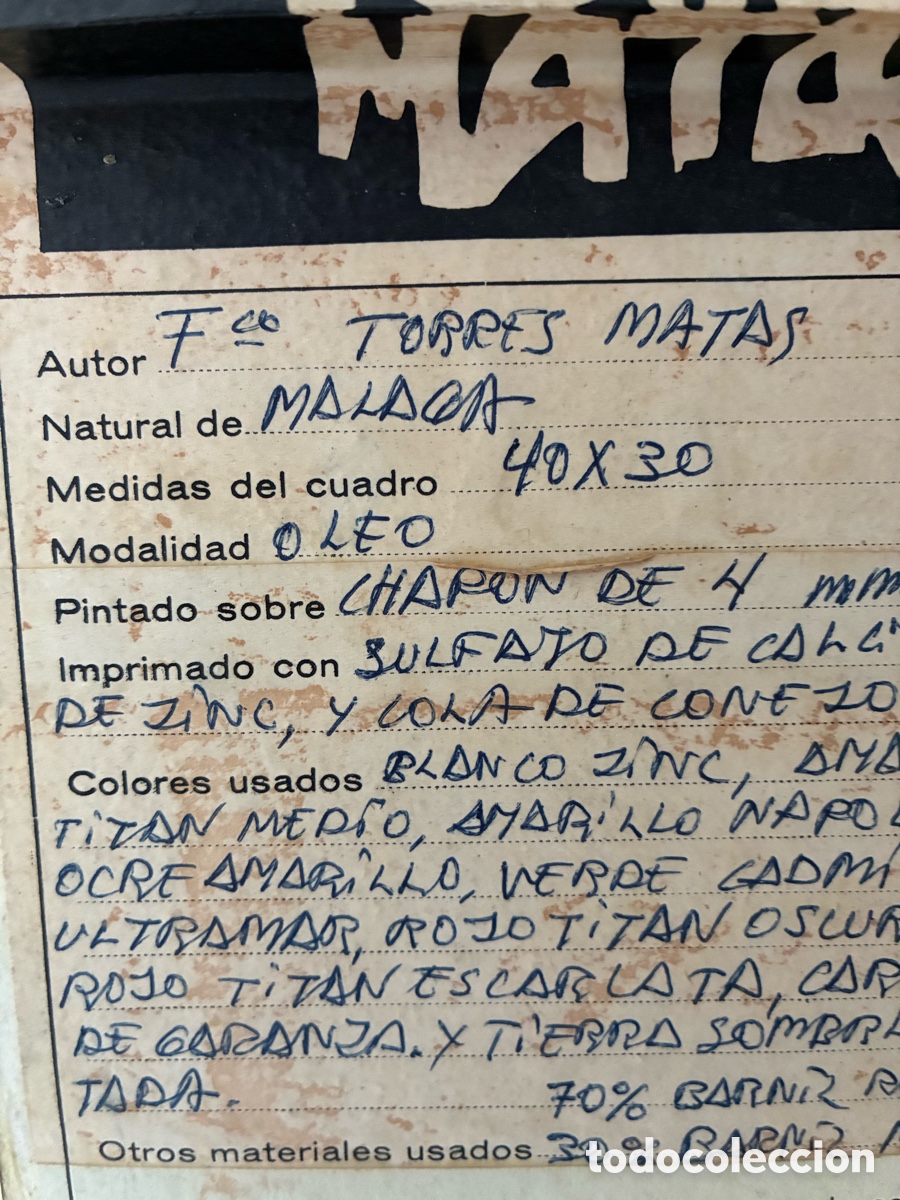 MATA
Autor Fco TORRES MATAS
Natural de MALAGA
Medidas del cuadro 40X30
Modalidad OLEO
Pintado sobre CHAPON DE 4 mm
Imprimado con SULFATO DE CALCI
DE ZINC, Y COLA DE CONEJO
Colores usados BLANCO ZINC, AMA
TITAN MEDIO, AMARILLO NAPOL
OCRE AMARILLO, VERDE CADMI
ULTRAMAR, ROJO TITAN OSCUR
ROJO TITAN ESCARLATA, CAR
DE GARANZA. Y TIERRA SOMBRA
TADA. 70% BARNIZ R
Otros materiales usados 30% BARNIZ
todocoleccion